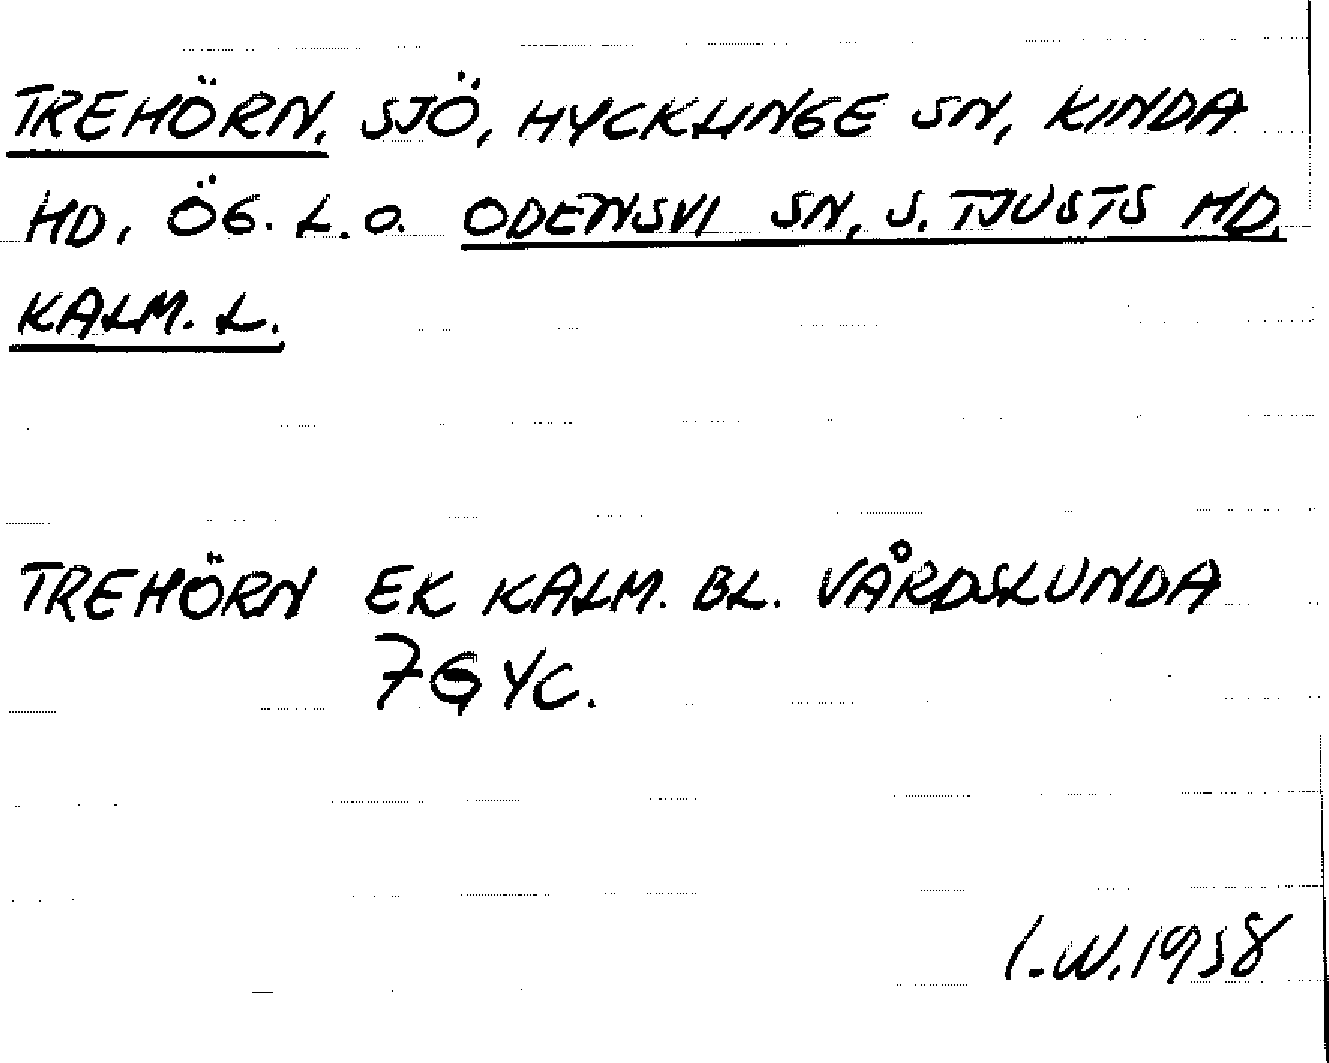 TREHÖRN, SJÖ, HYCKLINGE SN, KINDA
HD, ÖG. L. O. ODENSVI SN, S. TJUSTS HD,
KALM. L.
TREHÖRN EK KALM. BL. VÅRDSLUNDA
7G YC.
I.W. 1958